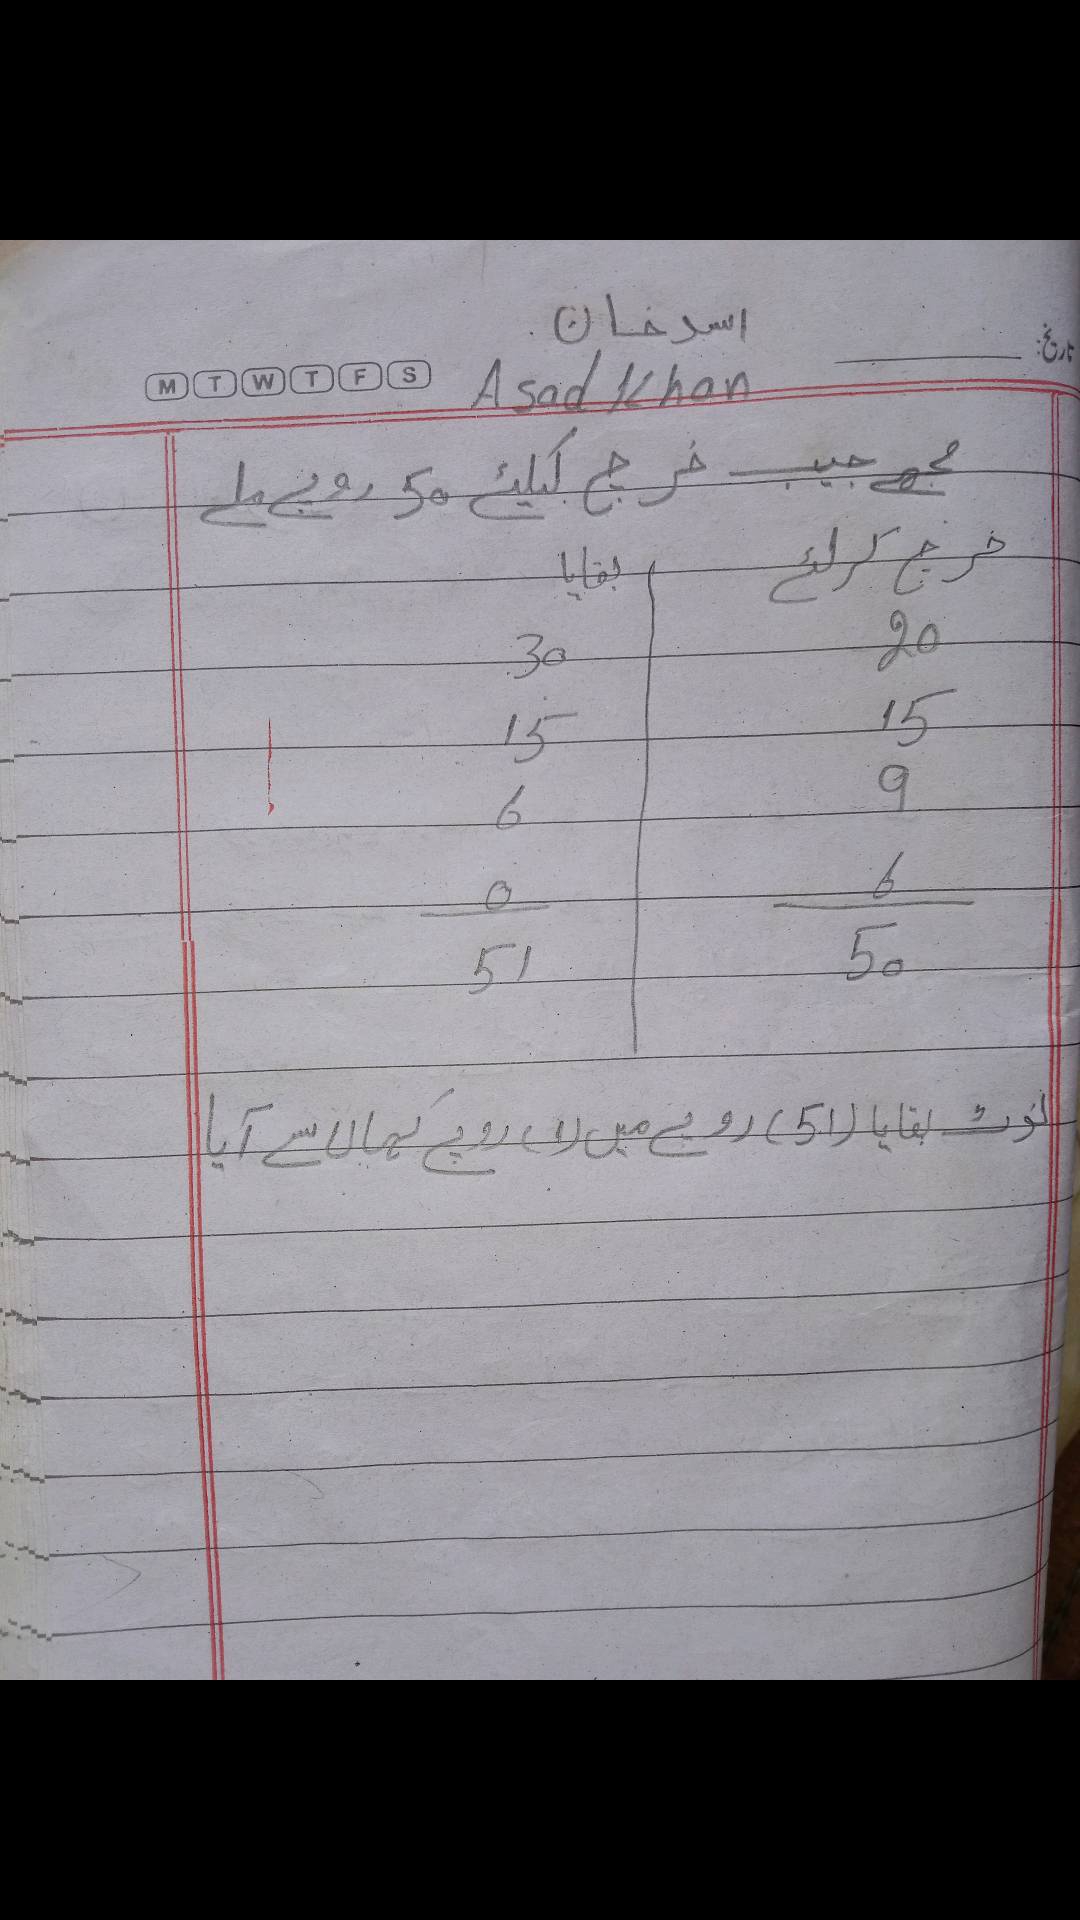 اسد خان
تاریخ:
M T W T F S
Asad Khan
مجھے جیب خرچ کیلئے 50 روپے ملے
خرچ کر لئے بقایا
20 30
15 15
9 6
6 0
50 51
نوٹ بقایا (51) روپے میں (1) روپے کہاں سے آیا